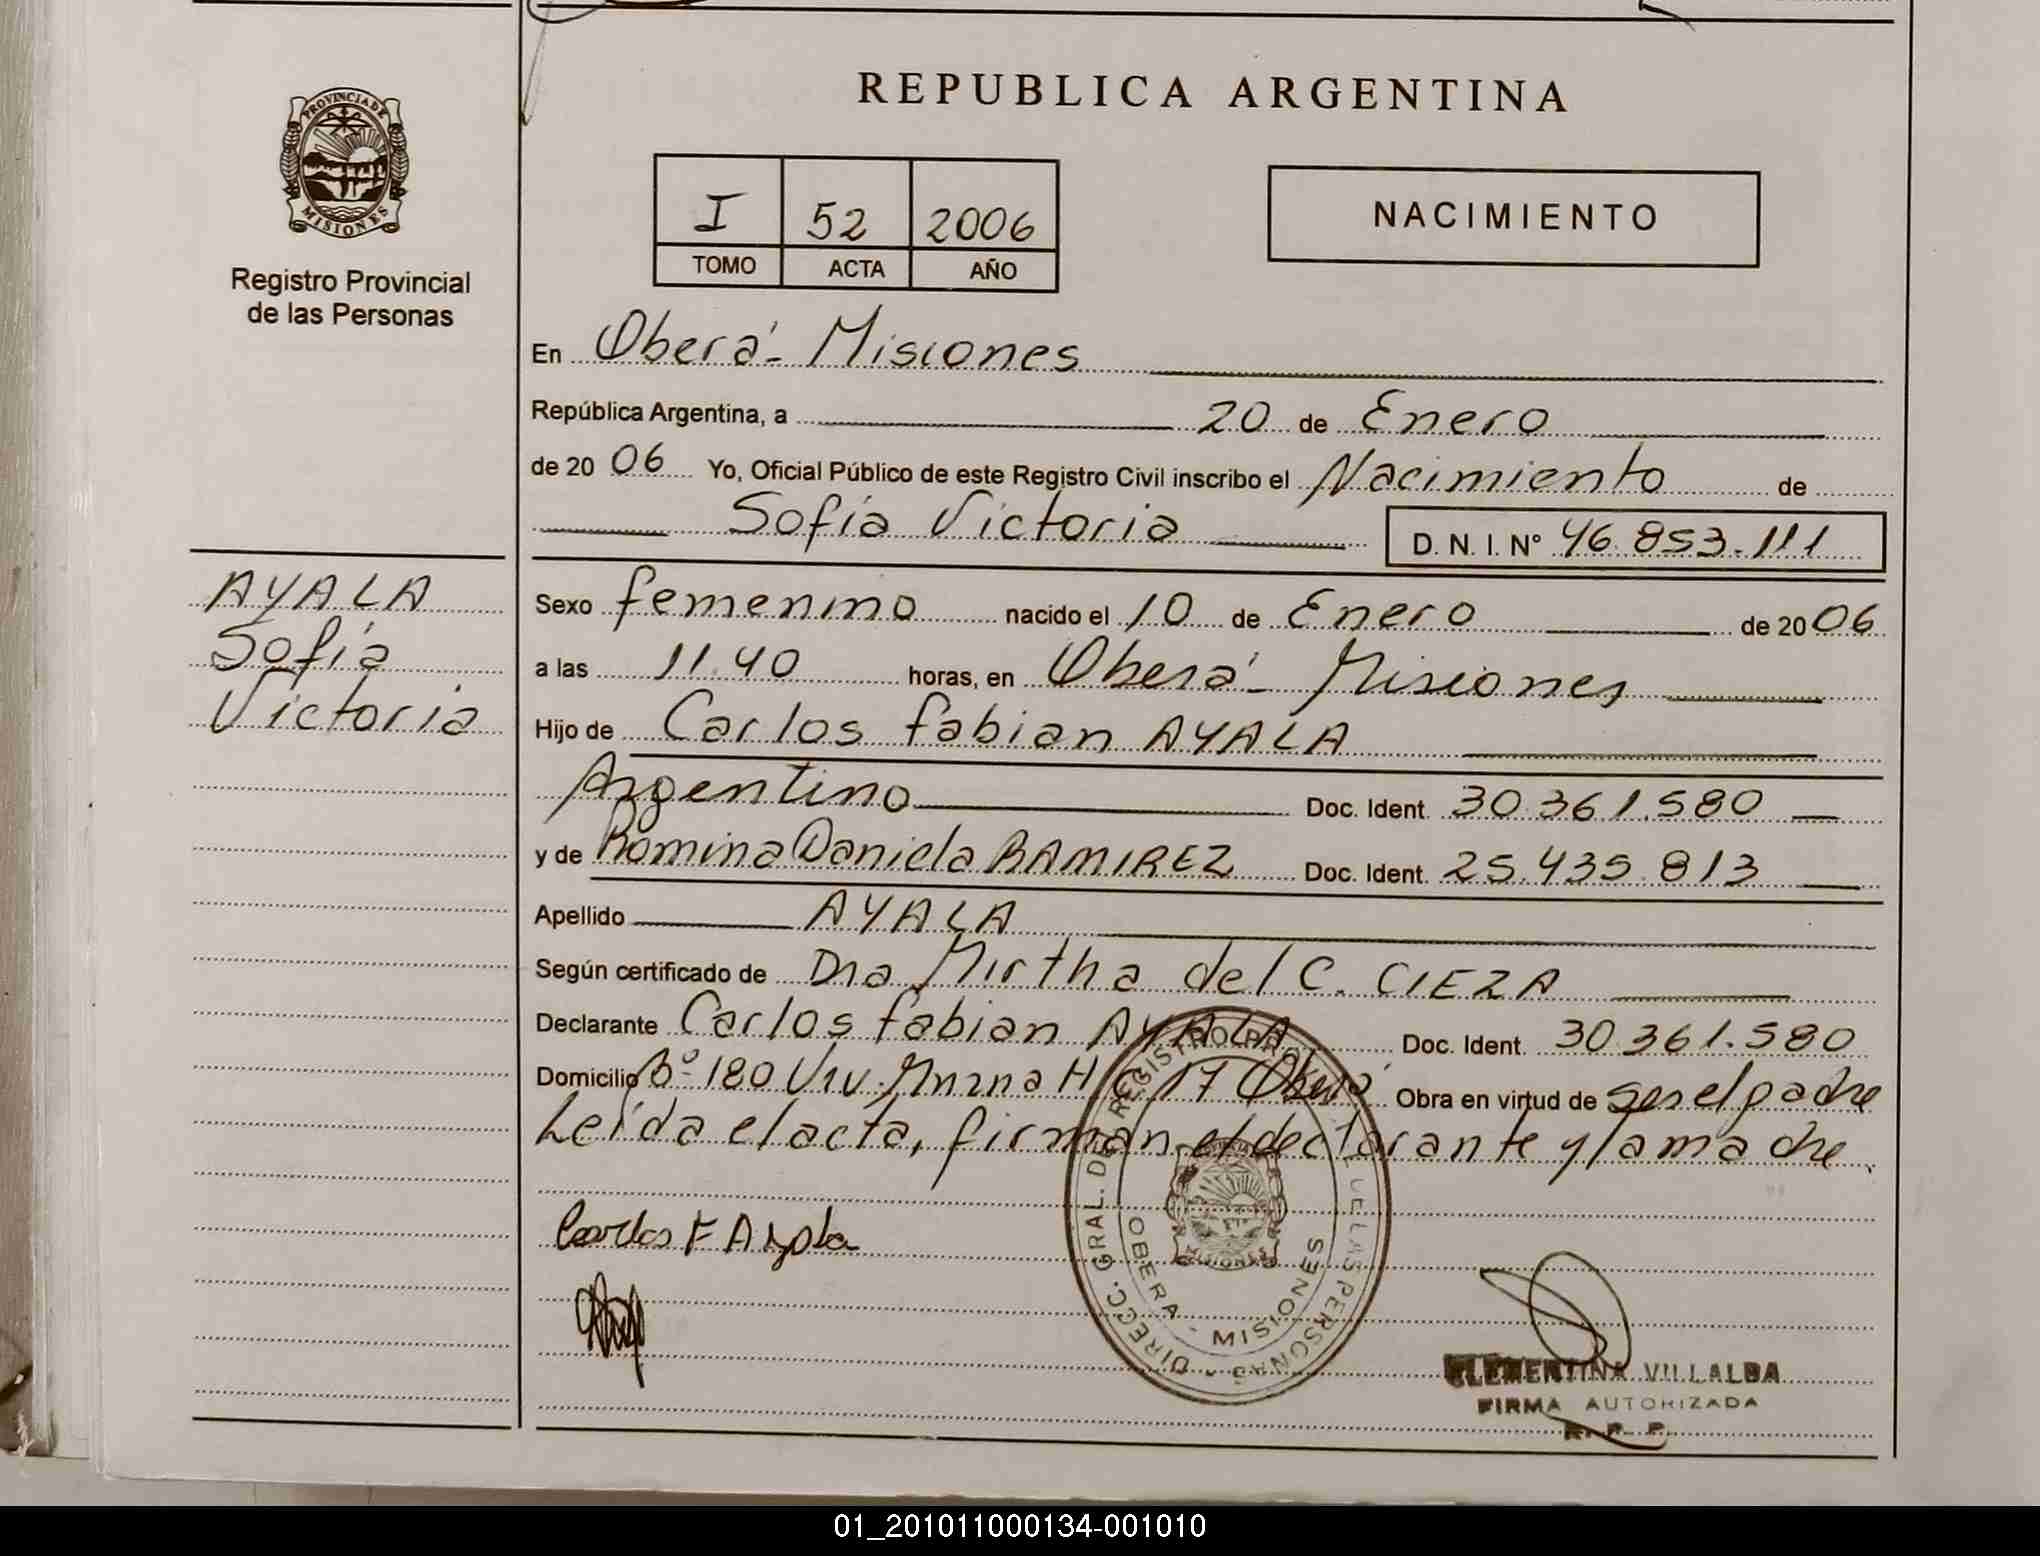 REPUBLICA ARGENTINA
PROVINCIA DE
MISIONES
Registro Provincial
de las Personas
I 52 2006
TOMO ACTA AÑO
NACIMIENTO
En Oberá - Misiones
República Argentina, a 20 de Enero
de 20 06 Yo, Oficial Público de este Registro Civil inscribo el Nacimiento de
Sofía Victoria D. N. I. Nº 46.853.111
AYALA
Sofía
Victoria
Sexo femenino nacido el 10 de Enero de 20 06
a las 11.40 horas, en Oberá - Misiones
Hijo de Carlos fabian AYALA
Argentino Doc. Ident. 30.361.580
y de Romina Daniela RAMIREZ Doc. Ident. 25.435.813
Apellido AYALA
Según certificado de Dra Mirtha del C. CIEZA
Declarante Carlos fabian AYALA Doc. Ident. 30.361.580
Domicilio Bº 180 Viv. H C 17 Oberá Obra en virtud de ser el padre
Leída el acta, firman el declarante y la madre.
Carlos F Ayala
DIRECC. GRAL. DEL REGISTRO PROV. DE LAS PERSONAS
OBERA - MISIONES
MISIONES
CLEMENTINA VILLALBA
FIRMA AUTORIZADA
R. P. P.
01_201011000134-001010